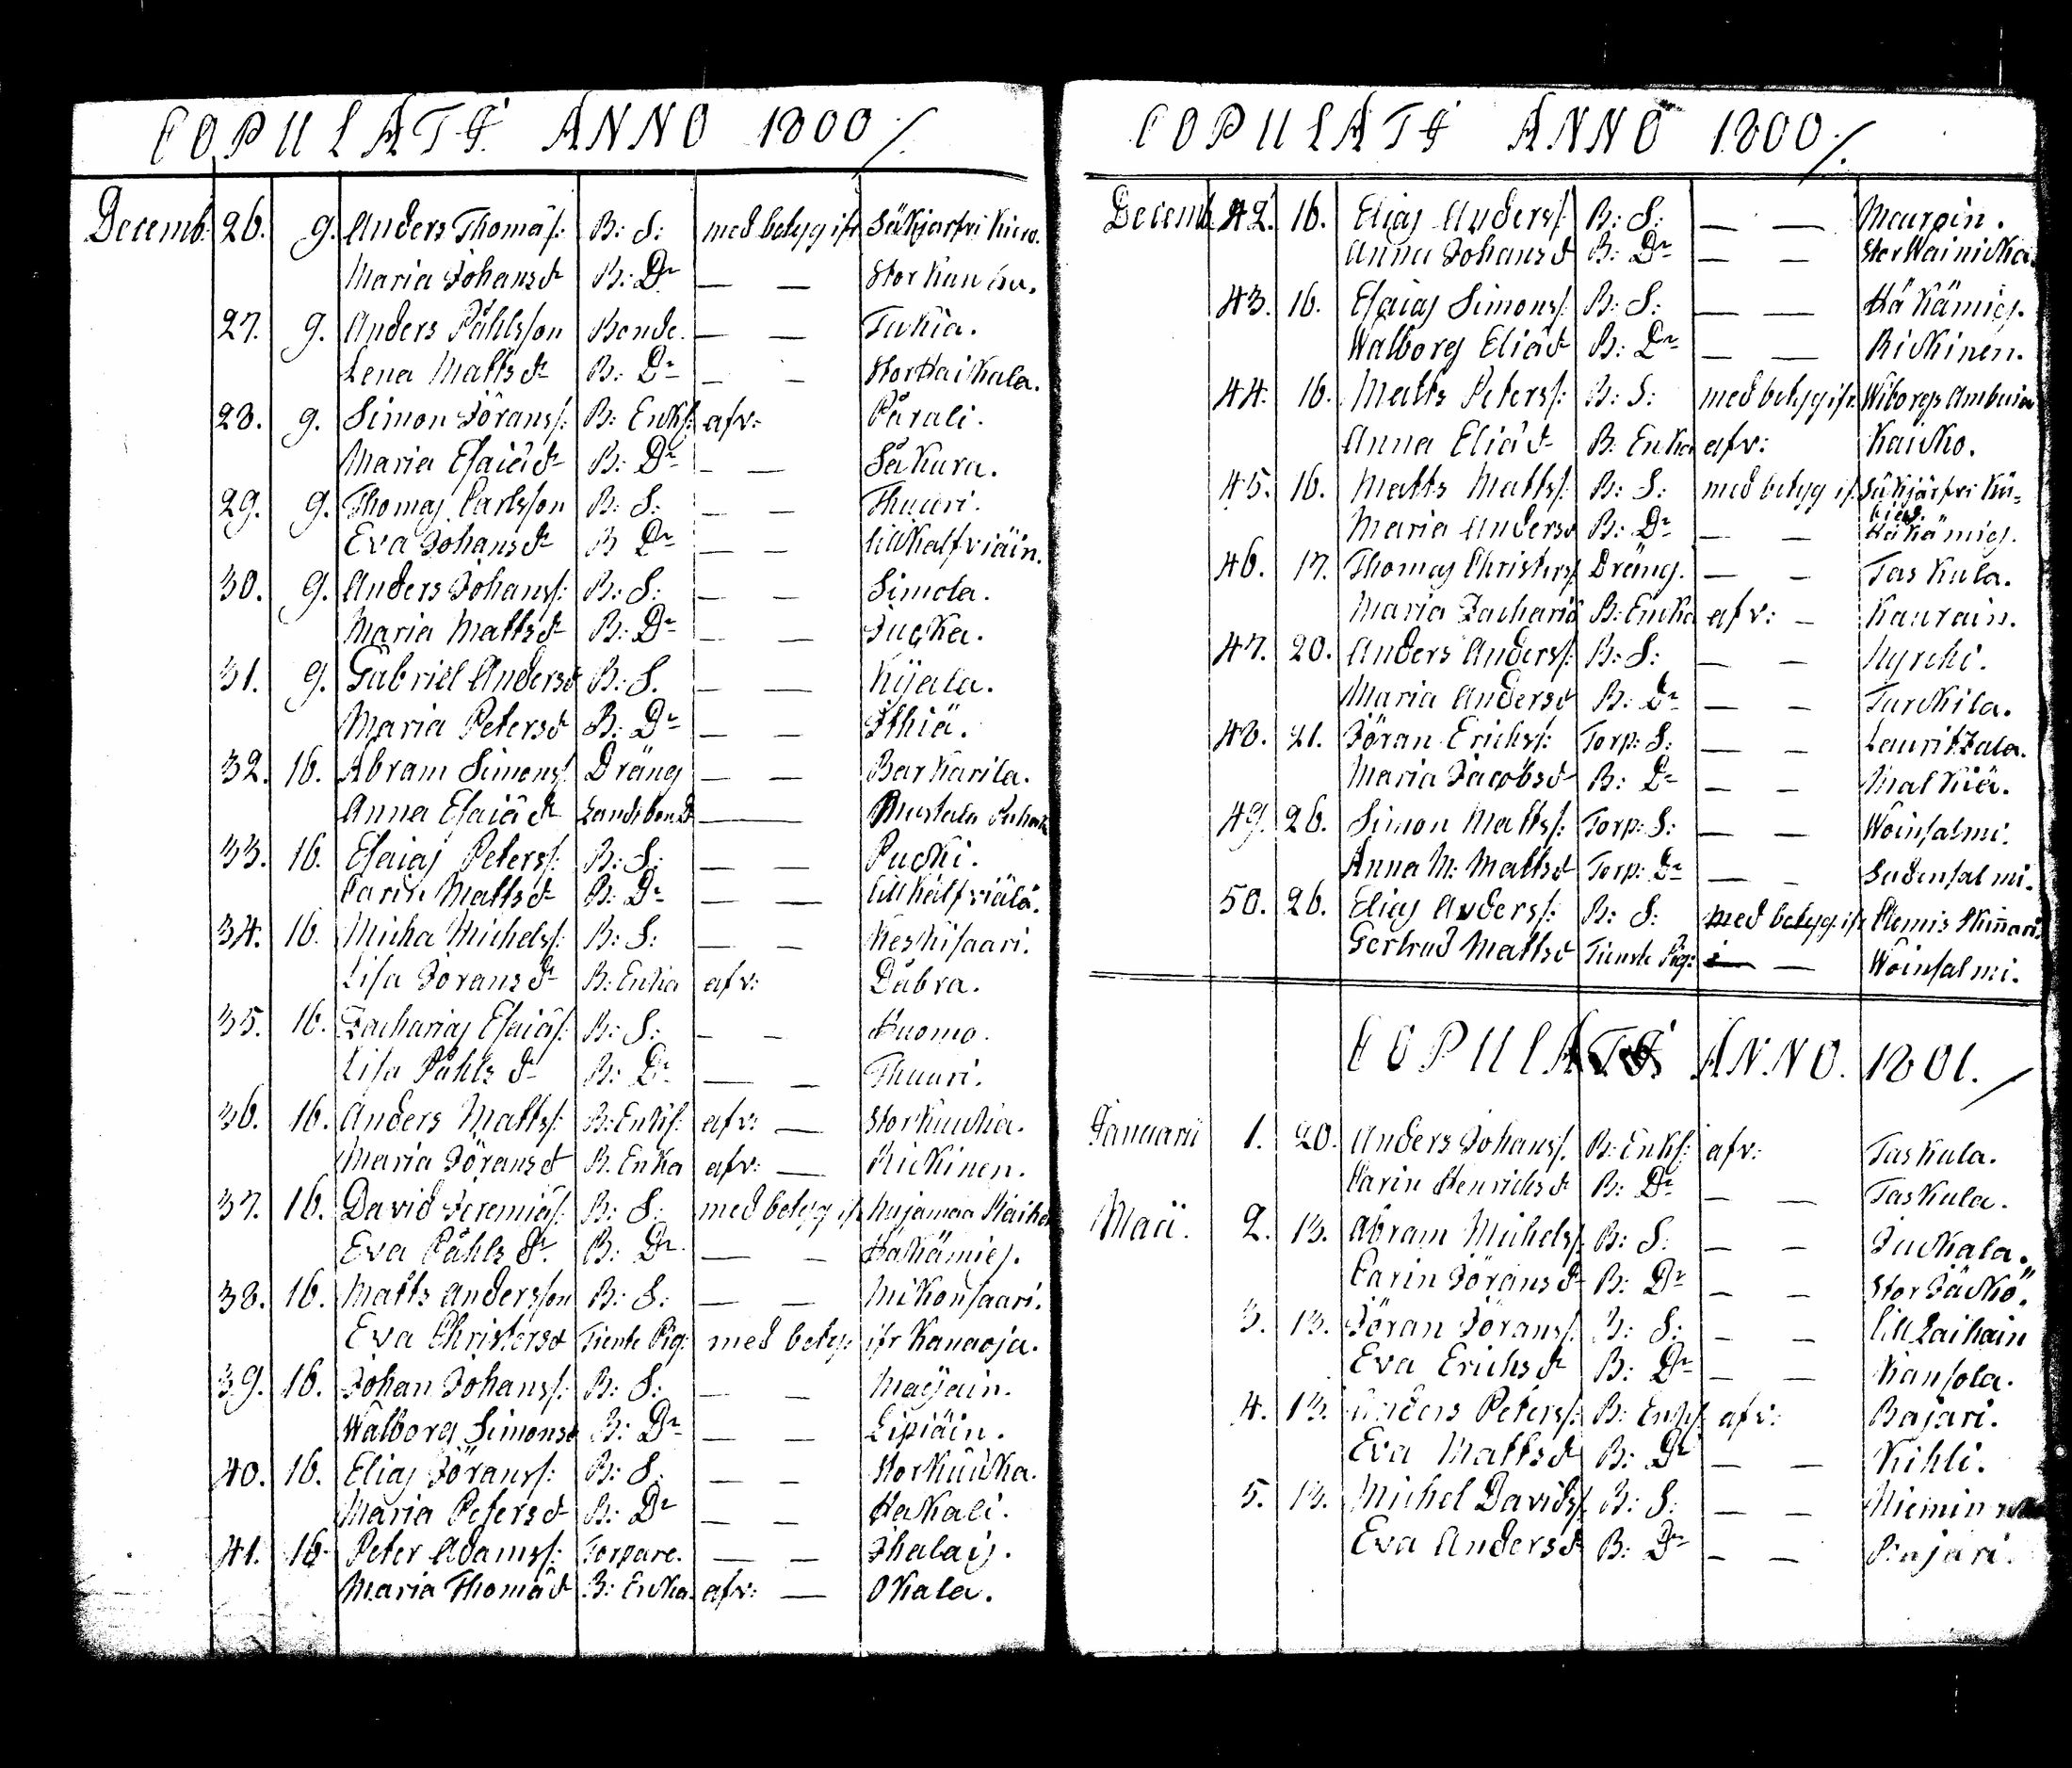 COPULATI ANNO 1800./.
Decemb: 26. 9. Anders Thomæs: B: S: med betyg ifr Säkjärfvi
Maria Johansdr B: Dr — — Stor
27. 9. Anders Påhlsson Bonde. — — Tukia.
Lena Mattsdr B: Dr — — Stor Haikala.
28. 9. Simon Jöranss: B: Enkl: afv: Pärali.
Maria Esaiædr B: Dr — — Säkura.
29. 9. Thomas Carlsson B: S: — — Thuuri.
Eva Johansdr B Dr — — Lill Kalfviäin.
30. 9. Anders Johanss: B: S: — — Simola.
Maria Mattsdr B: Dr — — Jucka.
31. 9. Gabriel Andersd B: S. — — Kijala.
Maria Petersdr B: Dr — — Ithiä.
32. 16. Abram Simonss: Dräng — — Barkarila.
Anna Esaiædr Landsbondr — Mustala
33. 16. Esaias Peterss: B: S: — — Pucki.
Carin Mattsdr B: Dr — — Lill Kalfviälä.
34. 16. Micha Michelss: B: S: — — Keskisaari.
Lisa Joransdr B: Enka afv: Dåbra.
35. 16. Zacharias Esaiæs: B: S: — — Huomo.
Lisa Påhlsdr B: Dr — — Thuuri.
36. 16. Anders Mattss: B: Enkl: afv: — Stor Kuucka.
Maria Jöransd B. Enka afv: — Rickinen.
37. 16. David Jeremiæs: B: S: med betyg ifr Nujamaa
Eva Påhlsdr B: Dr — — Häkämies.
38. 16. Matts Andersson B: S: — — Mikonsaari.
Eva Christersd Tienste Pig: med betyg: ifr Kanaoja.
39. 16. Johan Johanss: B: S: — — Maijain.
Walborg Simonsd B: Dr — — Lipiäin.
40. 16. Elias Jöranss: B: S: — — Stor Kuucka.
Maria Petersd B: Dr — — Hakali.
41. 16. Peter Adamss: Torpare. — — Ihalais.
Maria Thomæd B: Encka. afv: — Okala.
COPULATI ANNO 1800./.
Decemb. 42. 16. Elias Anderss: B: S: — — Mauroin.
Anna Johansd B: Dr — — Stor Wäinicka.
43. 16. Esaias Simonss: B: S: — — Häkämies.
Walborg Eliæd B: Dr — — Rickinen.
44. 16. Matts Peterss: B: S: med betyg ifr. Wiborgs
Anna Eliædr B: Enka afv: Kaucko.
45. 16. Matts Mattss: B: S: med betyg ifr. Säkjärfvi
Maria Andersd B: Dr — — Häkämies.
46. 17. Thomas Christerss: Dräng. — — Taskula.
Maria Zachariæ B: Encka afv: — Kaurain.
47. 20. Anders Anderss: B: S: — — Hyrcki.
Maria Andersd B: Dr — — Turckila.
48. 21. Jöran Erichss: Torp: S: — — Lauritzala.
Maria Jacobsdr B: Dr — — Malkiä.
49. 26. Simon Mattss: Torp: S: — — Woinsalmi.
Anna M: Mattsd Torp: Dr — — Sudensalmi.
50. 26. Elias Anderss: B: S: med betyg: ifr Klemis
Gertrud Mattsd Tienste Pig: — — Woinsalmi.
COPULATI ANNO. 1801./
Januarii 1. 20. Anders Johanss: B: Enkl: afv: Taskula.
Carin Henrichsd B: Dr — — Taskula.
Maii. 2. 13. Abram Michelss: B: S: — — Juckala.
Carin Jöransdr B: Dr — — Stor Jäckö.
3. 13. Jöran Jöranss: B: S: — — Lill Laihain
Eva Erichsdr B: Dr — — Kansola.
4. 13. Anders Peterss: B: Enkl: afv: Bajari.
Eva Mattsdr B: Dr — — Kihli.
5. 13. Michel Davidss: B: S: — —
Eva Andersdr B: Dr — — Pajari.